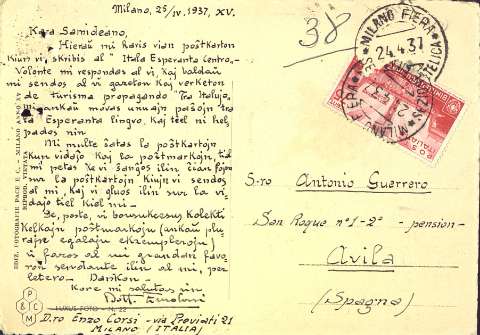 Milano, 25/IV. 1937, XV.
Kara Samideano,
Hieraŭ mi ricevis vian poŝtkarton
Kiun vi skribis al "Itala Esperanto Centro".
Volonte mi respondas al vi, Kaj baldaŭ
mi sendos al vi gazeton Kaj verketon
de turisma propagando "Tra Italujo,
mi ankaŭ movas unuajn paŝojn tra
la Esperanta lingvo, Kaj tiel ni hel
pados nin.
Mi multe ŝatas la poŝtkartojn
Kun vidaĵo Kaj la poŝtmarkojn,
mi petas Ke vi ŝanĝos ilin ĉian fojon
sur la poŝtkartojn Kiujn vi sendos
al mi, Kaj vi gluos ilin sur la vi-
daĵo tiel Kiel mi.
Se, poste, vi bonvokus Kolekti
Kelkajn poŝtmarkojn (ankaŭ plu
rajn egalajn ekzemplerojn)
vi faros al mi grandan favo
ron sendante ilin al mi, per
letero. Dankon.
Kore mi salutas vin
D.ro Enzo Corsi - via Previati 21
MILANO (ITALIA)
EDIZ. FOTOGRAFIE PACE E C. - MILANO
P & C M
LUXUS FOTO - N. 22
38
MILANO FIERA
24.4.37
POSTE ITALIANE
S-ro Antonio Guerrero
San Roque nº 1-2º - pension-
Avila
(Spagna)